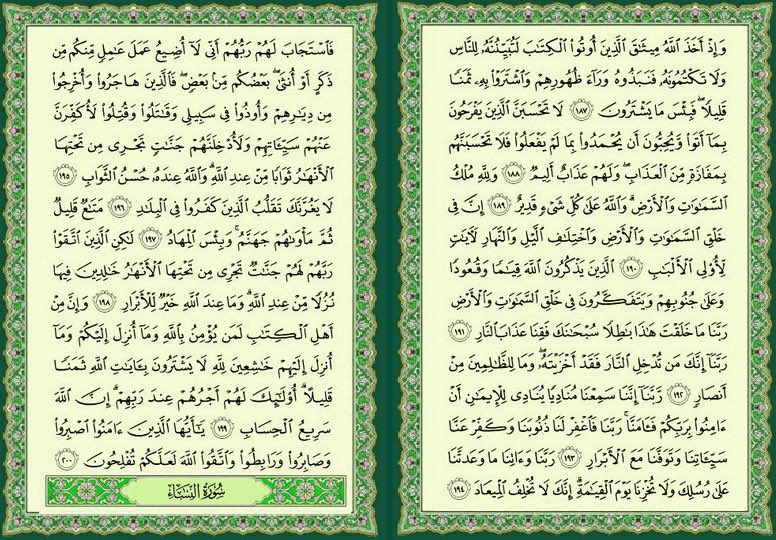 وَإِذْ أَخَذَ ٱللَّهُ مِيثَٰقَ ٱلَّذِينَ أُوتُوا۟ ٱلْكِتَٰبَ لَتُبَيِّنُنَّهُۥ لِلنَّاسِ
وَلَا تَكْتُمُونَهُۥ فَنَبَذُوهُ وَرَآءَ ظُهُورِهِمْ وَٱشْتَرَوْا۟ بِهِۦ ثَمَنًا
قَلِيلًا ۖ فَبِئْسَ مَا يَشْتَرُونَ ١٨٧ لَا تَحْسَبَنَّ ٱلَّذِينَ يَفْرَحُونَ
بِمَآ أَتَوا۟ وَّيُحِبُّونَ أَن يُحْمَدُوا۟ بِمَا لَمْ يَفْعَلُوا۟ فَلَا تَحْسَبَنَّهُم
بِمَفَازَةٍ مِّنَ ٱلْعَذَابِ ۖ وَلَهُمْ عَذَابٌ أَلِيمٌ ١٨٨ وَلِلَّهِ مُلْكُ
ٱلسَّمَٰوَٰتِ وَٱلْأَرْضِ ۗ وَٱللَّهُ عَلَىٰ كُلِّ شَىْءٍ قَدِيرٌ ١٨٩ إِنَّ فِى
خَلْقِ ٱلسَّمَٰوَٰتِ وَٱلْأَرْضِ وَٱخْتِلَٰفِ ٱلَّيْلِ وَٱلنَّهَارِ لَءَايَٰتٍ
لِّأُو۟لِى ٱلْأَلْبَٰبِ ١٩٠ ٱلَّذِينَ يَذْكُرُونَ ٱللَّهَ قِيَٰمًا وَقُعُودًا
وَعَلَىٰ جُنُوبِهِمْ وَيَتَفَكَّرُونَ فِى خَلْقِ ٱلسَّمَٰوَٰتِ وَٱلْأَرْضِ
رَبَّنَا مَا خَلَقْتَ هَٰذَا بَٰطِلًا سُبْحَٰنَكَ فَقِنَا عَذَابَ ٱلنَّارِ ١٩١
رَبَّنَآ إِنَّكَ مَن تُدْخِلِ ٱلنَّارَ فَقَدْ أَخْزَيْتَهُۥ ۖ وَمَا لِلظَّٰلِمِينَ مِنْ
أَنصَارٍ ١٩٢ رَّبَّنَآ إِنَّنَا سَمِعْنَا مُنَادِيًا يُنَادِى لِلْإِيمَٰنِ أَنْ
ءَامِنُوا۟ بِرَبِّكُمْ فَـَٔامَنَّا ۚ رَبَّنَا فَٱغْفِرْ لَنَا ذُنُوبَنَا وَكَفِّرْ عَنَّا
سَيِّـَٔاتِنَا وَتَوَفَّنَا مَعَ ٱلْأَبْرَارِ ١٩٣ رَبَّنَا وَءَاتِنَا مَا وَعَدتَّنَا
عَلَىٰ رُسُلِكَ وَلَا تُخْزِنَا يَوْمَ ٱلْقِيَٰمَةِ ۗ إِنَّكَ لَا تُخْلِفُ ٱلْمِيعَادَ ١٩٤
فَٱسْتَجَابَ لَهُمْ رَبُّهُمْ أَنِّى لَآ أُضِيعُ عَمَلَ عَٰمِلٍ مِّنكُم مِّن
ذَكَرٍ أَوْ أُنثَىٰ ۖ بَعْضُكُم مِّنۢ بَعْضٍ ۖ فَٱلَّذِينَ هَاجَرُوا۟ وَأُخْرِجُوا۟
مِن دِيَٰرِهِمْ وَأُوذُوا۟ فِى سَبِيلِى وَقَٰتَلُوا۟ وَقُتِلُوا۟ لَأُكَفِّرَنَّ
عَنْهُمْ سَيِّـَٔاتِهِمْ وَلَأُدْخِلَنَّهُمْ جَنَّٰتٍ تَجْرِى مِن تَحْتِهَا
ٱلْأَنْهَٰرُ ثَوَابًا مِّنْ عِندِ ٱللَّهِ ۗ وَٱللَّهُ عِندَهُۥ حُسْنُ ٱلثَّوَابِ ١٩٥
لَا يَغُرَّنَّكَ تَقَلُّبُ ٱلَّذِينَ كَفَرُوا۟ فِى ٱلْبِلَٰدِ ١٩٦ مَتَٰعٌ قَلِيلٌ
ثُمَّ مَأْوَىٰهُمْ جَهَنَّمُ ۚ وَبِئْسَ ٱلْمِهَادُ ١٩٧ لَٰكِنِ ٱلَّذِينَ ٱتَّقَوْا۟
رَبَّهُمْ لَهُمْ جَنَّٰتٌ تَجْرِى مِن تَحْتِهَا ٱلْأَنْهَٰرُ خَٰلِدِينَ فِيهَا
نُزُلًا مِّنْ عِندِ ٱللَّهِ ۗ وَمَا عِندَ ٱللَّهِ خَيْرٌ لِّلْأَبْرَارِ ١٩٨ وَإِنَّ مِنْ
أَهْلِ ٱلْكِتَٰبِ لَمَن يُؤْمِنُ بِٱللَّهِ وَمَآ أُنزِلَ إِلَيْكُمْ وَمَآ
أُنزِلَ إِلَيْهِمْ خَٰشِعِينَ لِلَّهِ لَا يَشْتَرُونَ بِـَٔايَٰتِ ٱللَّهِ ثَمَنًا
قَلِيلًا ۗ أُو۟لَٰٓئِكَ لَهُمْ أَجْرُهُمْ عِندَ رَبِّهِمْ ۗ إِنَّ ٱللَّهَ
سَرِيعُ ٱلْحِسَابِ ١٩٩ يَٰٓأَيُّهَا ٱلَّذِينَ ءَامَنُوا۟ ٱصْبِرُوا۟
وَصَابِرُوا۟ وَرَابِطُوا۟ وَٱتَّقُوا۟ ٱللَّهَ لَعَلَّكُمْ تُفْلِحُونَ ٢٠٠
سُورَةُ النِّسَاءِ